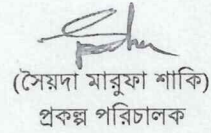 (সৈয়দা মারুফা শাকি)
প্রকল্প পরিচালক